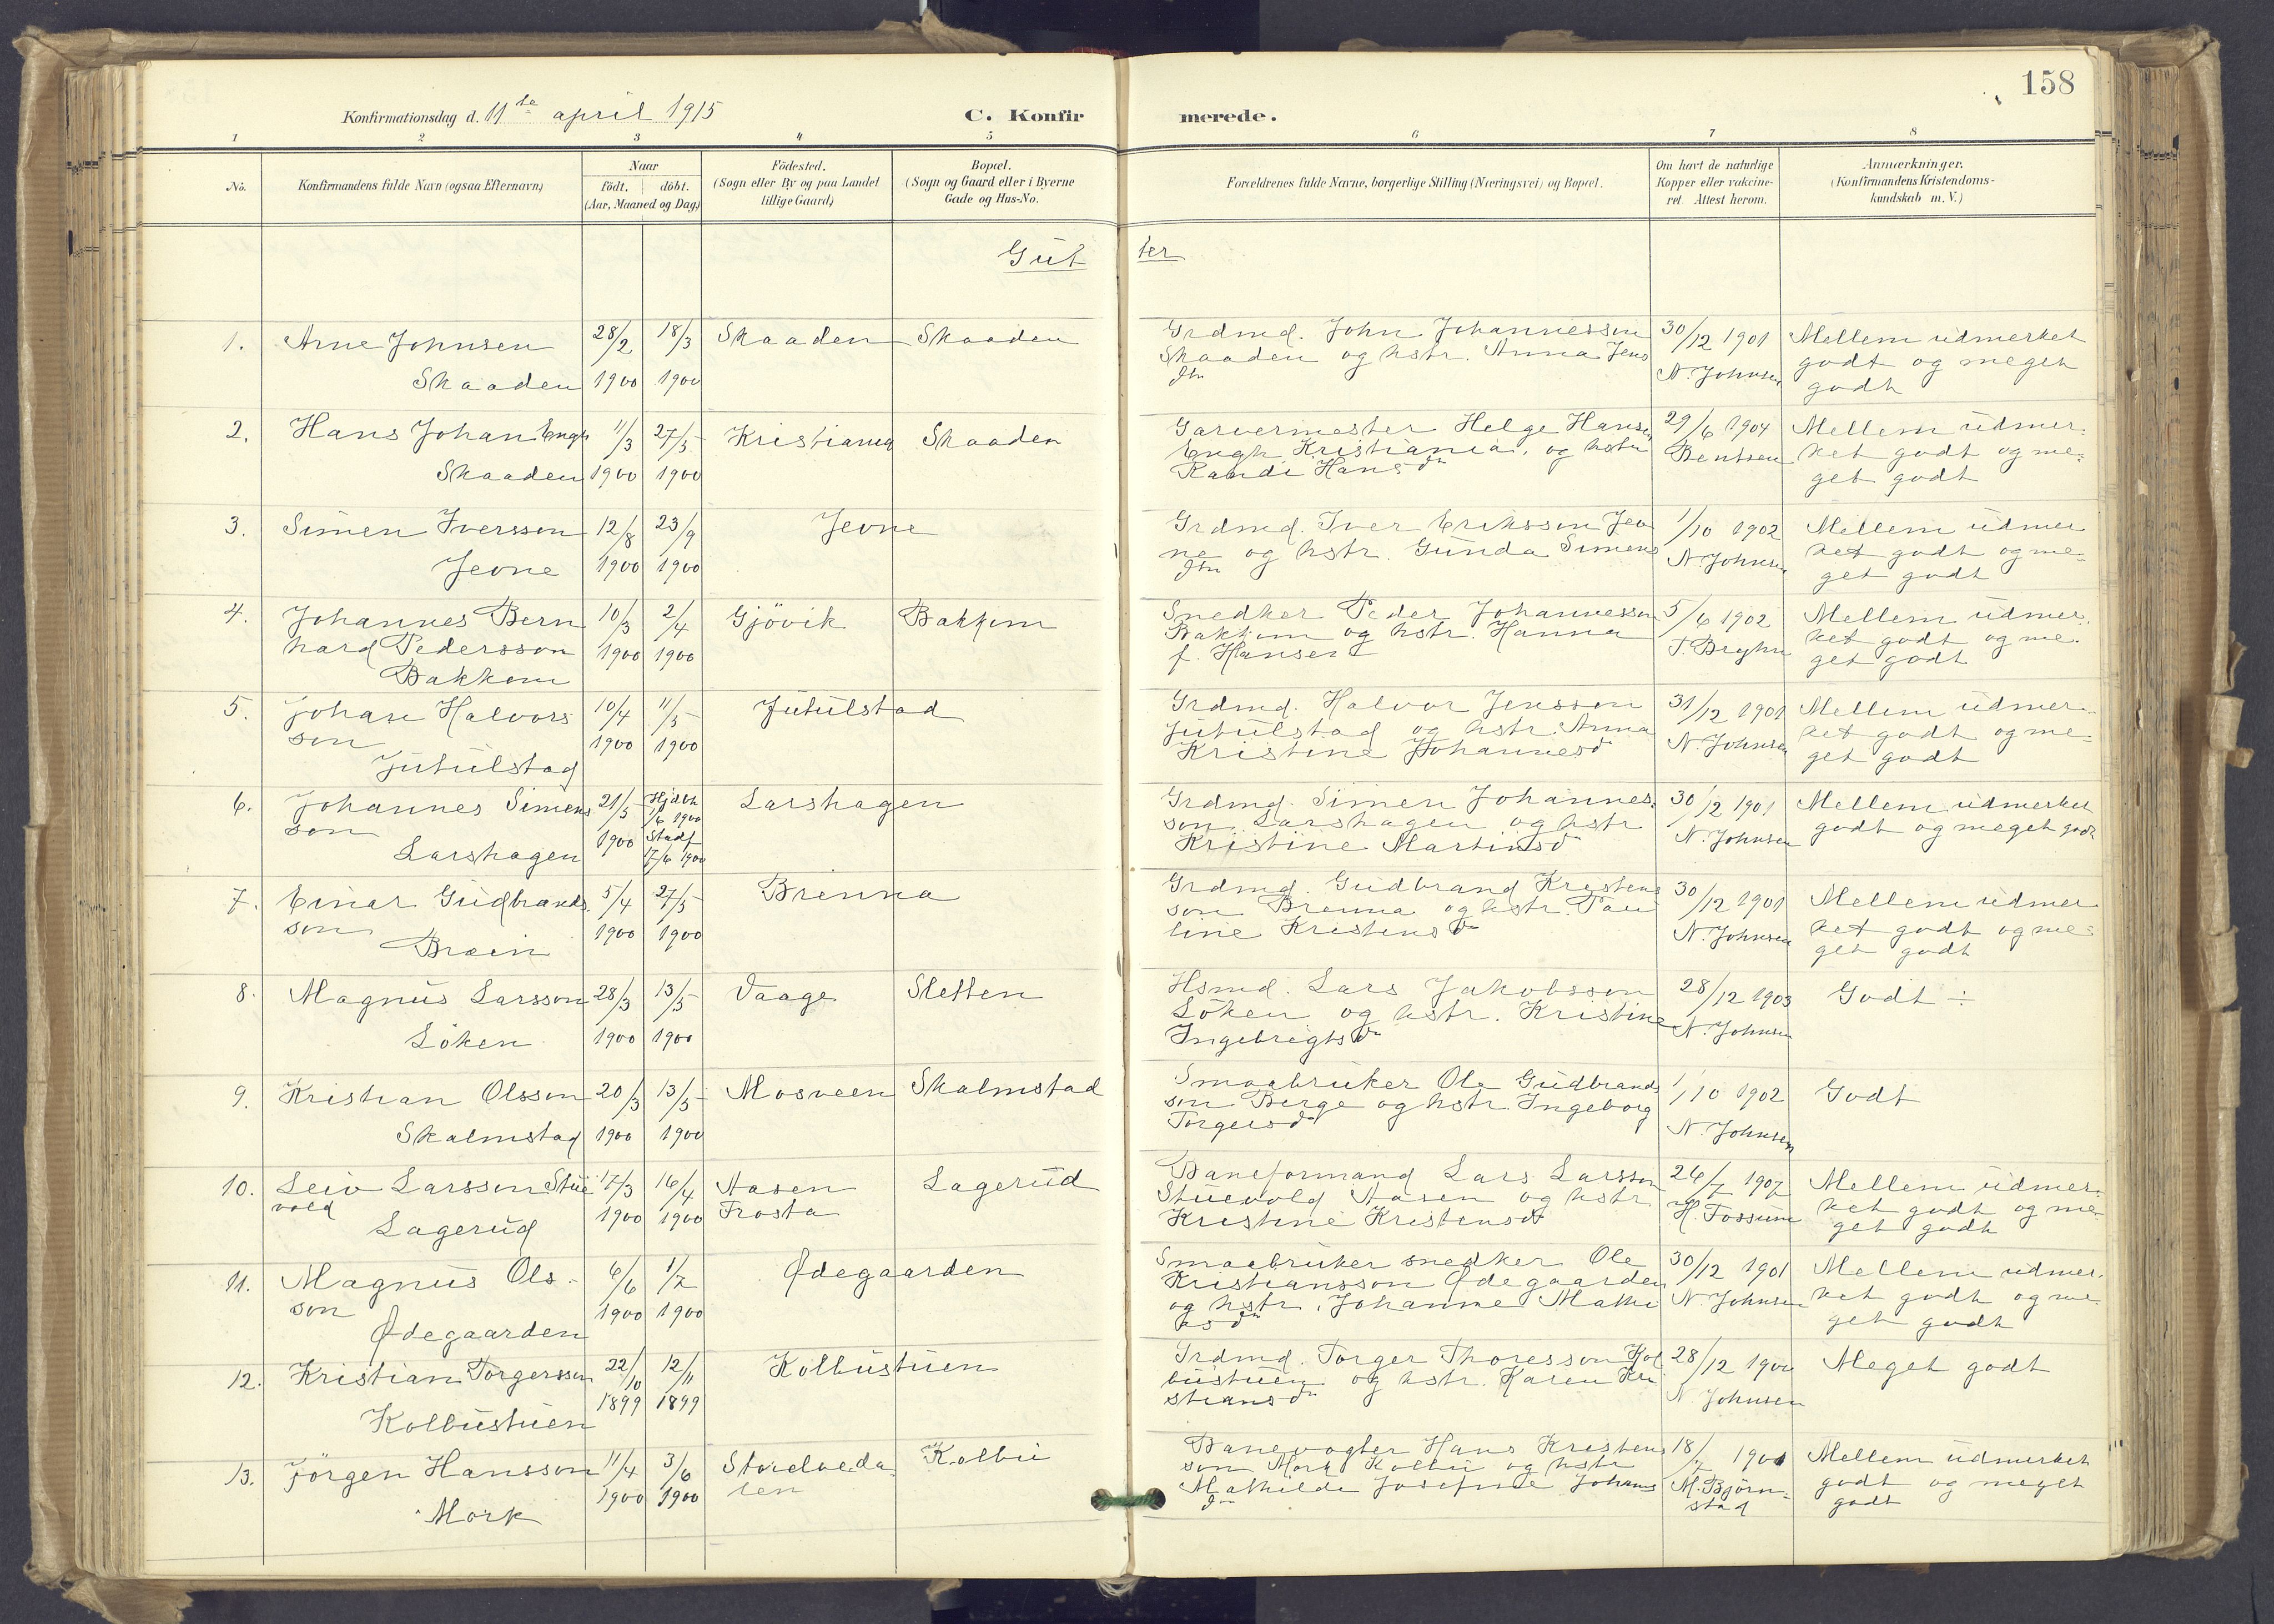 158
Konfirmationsdag d. 11te april 1915
C. Konfirmerede.
1 2 3 4 5 6 7 8
No.
Konfirmandens fulde Navn (ogsaa Efternavn)
Naar
födt. döbt.
(Aar, Maaned og Dag)
Födested.
(Sogn eller By og paa Landet
tillige Gaard)
Bopæl.
(Sogn og Gaard eller i Byerne
Gade og Hus-No.
Forældrenes fulde Navne, borgerlige Stilling (Næringsvei) og Bopæl.
Om havt de naturlige
Kopper eller vakcine-
ret. Attest herom.
Anmærkninger.
(Konfirmandens Kristendoms-
kundskab m. V.)
Gutter
1.
Arne Johnsen
Skaaden
28/2
1900
18/3
1900
Skaaden
Skaaden
Grdmd. John Johannesson
Skaaden og hstr. Anna Jens
dtr
30/12 1901
N. Johnsen
Mellem udmerket
godt og meget
godt
2.
Hans Johan Engh
Skaaden
11/3
1900
27/5
1900
Kristiania
Skaaden
Garvermester Helge Hansen
Engh Kristiania, og hstr
Randi Hansd
29/6 1904
Bentsen
Mellem udmer
ket godt og me=
get godt
3.
Simen Iversson
Jevne
12/8
1900
23/9
1900
Jevne
Grdmd. Iver Eriksson Jev
ne og hstr. Gunda Simens
dtr
1/10 1902
N. Johnsen
Mellem udmer
ket godt og me=
get godt
4.
Johannes Bern
hard Pedersson
Bakkom
10/3
1900
2/4
1900
Gjövik
Bakkom
Snedker Peder Johannesson
Bakkom og hstr. Hanna
f. Hansen
5/6 1902
T. Bryhn
Mellem udmer.
ket godt og me.
get godt
5.
Johan Halvors
son
Jutulstad
10/4
1900
11/5
1900
Jutulstad
Grdmd. Halvor Jensson
Jutulstad og hstr. Anna
Kristine Johannesd
31/12 1901
N. Johnsen
Mellem udmer.
ket godt og me=
get godt
6.
Johannes Simens
son
Larshagen
21/5
1900
Hjdbt
1/6 1900
Stadf
17/6 1900
Larshagen
Grdmd. Simen Johannes
son Larshagen og hstr
Kristine Martinsd
30/12 1901
N. Johnsen
Mellem udmerket
godt og meget godt
7.
Einar Gudbrands
son
Bræin
5/4
1900
27/5
1900
Brenna
Grdmd. Gudbrand Kristens
son Brenna og hstr. Pau
line Kristensd
30/12 1901
N. Johnsen
Mellem udmer
ket godt og me=
get godt
8.
Magnus Larsson
Löken
28/3
1900
13/5
1900
Vaage
Sletten
Hsmd. Lars Jakobsson
Löken og hstr. Kristine
Ingebrigtsd
28/12 1903
N. Johnsen
Godt ÷
9.
Kristian Olsson
Skalmstad
20/3
1900
13/5
1900
Mosveen
Skalmstad
Smaabruker Ole Gudbrands
son Berge og hstr. Ingeborg
Torgersd
1/10 1902
N. Johnsen
Godt
10.
Leiv Larsson Stue
vold
Lagerud
17/3
1900
16/4
1900
Aasen
Frosta
Lagerud
Baneformand Lars Larsson
Stuevold Aasen og hstr
Kristine Kristensd
26/7 1907
H. Fossum
Mellem udmer.
ket godt og me
get godt
11.
Magnus Ols-
son
Ødegaarden
6/6
1900
1/7
1900
Ødegaarden
Smaabruker snedker Ole
Kristiansson Ødegaarden
og hstr. Johanne Mathi
asd
30/12 1901
N. Johnsen
Mellem udmer.
ket godt og me
get godt
12.
Kristian Torgersson
Kolbustuen
22/10
1899
12/11
1899
Kolbustuen
Grdmd. Torger Thoresson Kol
bustuen og hstr. Karen Kri
stiansd
28/12 1900
N Johnsen
Meget godt
13.
Jörgen Hansson
Mork
11/4
1900
3/6
1900
Kolbu
Banevogter Hans Kristens
son Mork Kolbu og hstr
Mathilde Josefine Johans
dtr
M. Björn-
stad
Mellem udmerket
godt og meget
godt